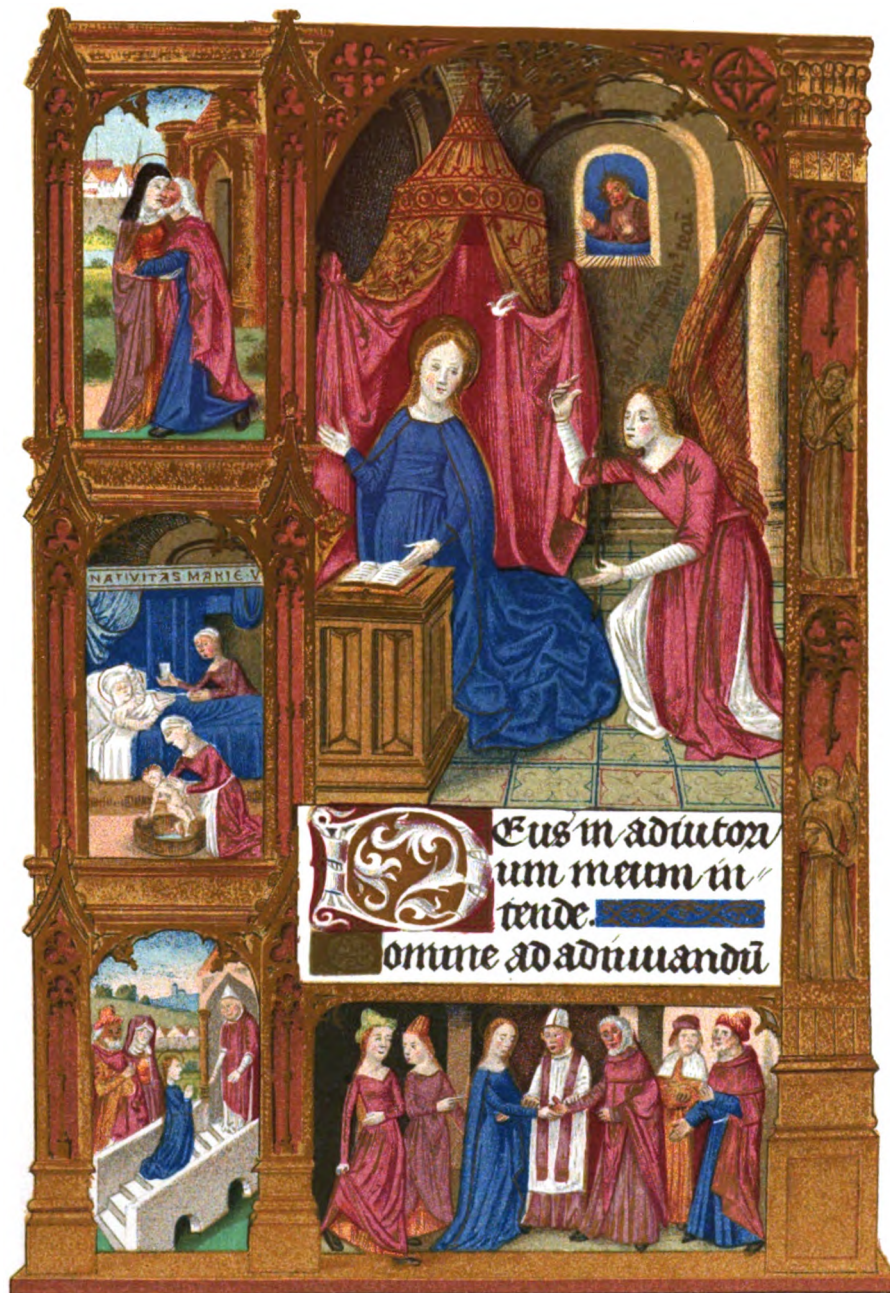 NATIVITAS MARIE V
DEus in adiutori
um meum in〃
tende.
Domine ad adiuuandū